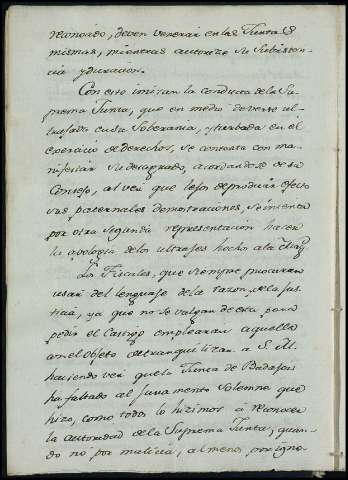 reconocido, deven venerar en las Juntas
mismas, mientras autorize su subsisten-
cia y duracion.
Con esto imitan la conducta de la Su-
prema Junta, que en medio de verse ul-
trajada en su Soberania, y turbada en el
exercicio de derechos, se contenta con ma-
nifestar su desagrado, acordandose de su
Consejo, al ver que lejos de producir efecto
sus paternales demostraciones, se intenta
por otra segunda representacion hacer
la apologia de los ultrages hechos a la Mag.d
Los Fiscales, que siempre procuran
usar del lenguage de la razon, y de la jus-
ticia, ya que no se valgan de esta para
pedir el Castigo emplearan aquella
con el objeto de tranquilizar a S. M.
haciendo ver que la Junta de Badajoz
ha faltado al juramento Solemne que
hizo, como todos lo hizimos de reconocer
la autoridad de la Suprema Junta, quan-
do no por malicia, al menos por igno-